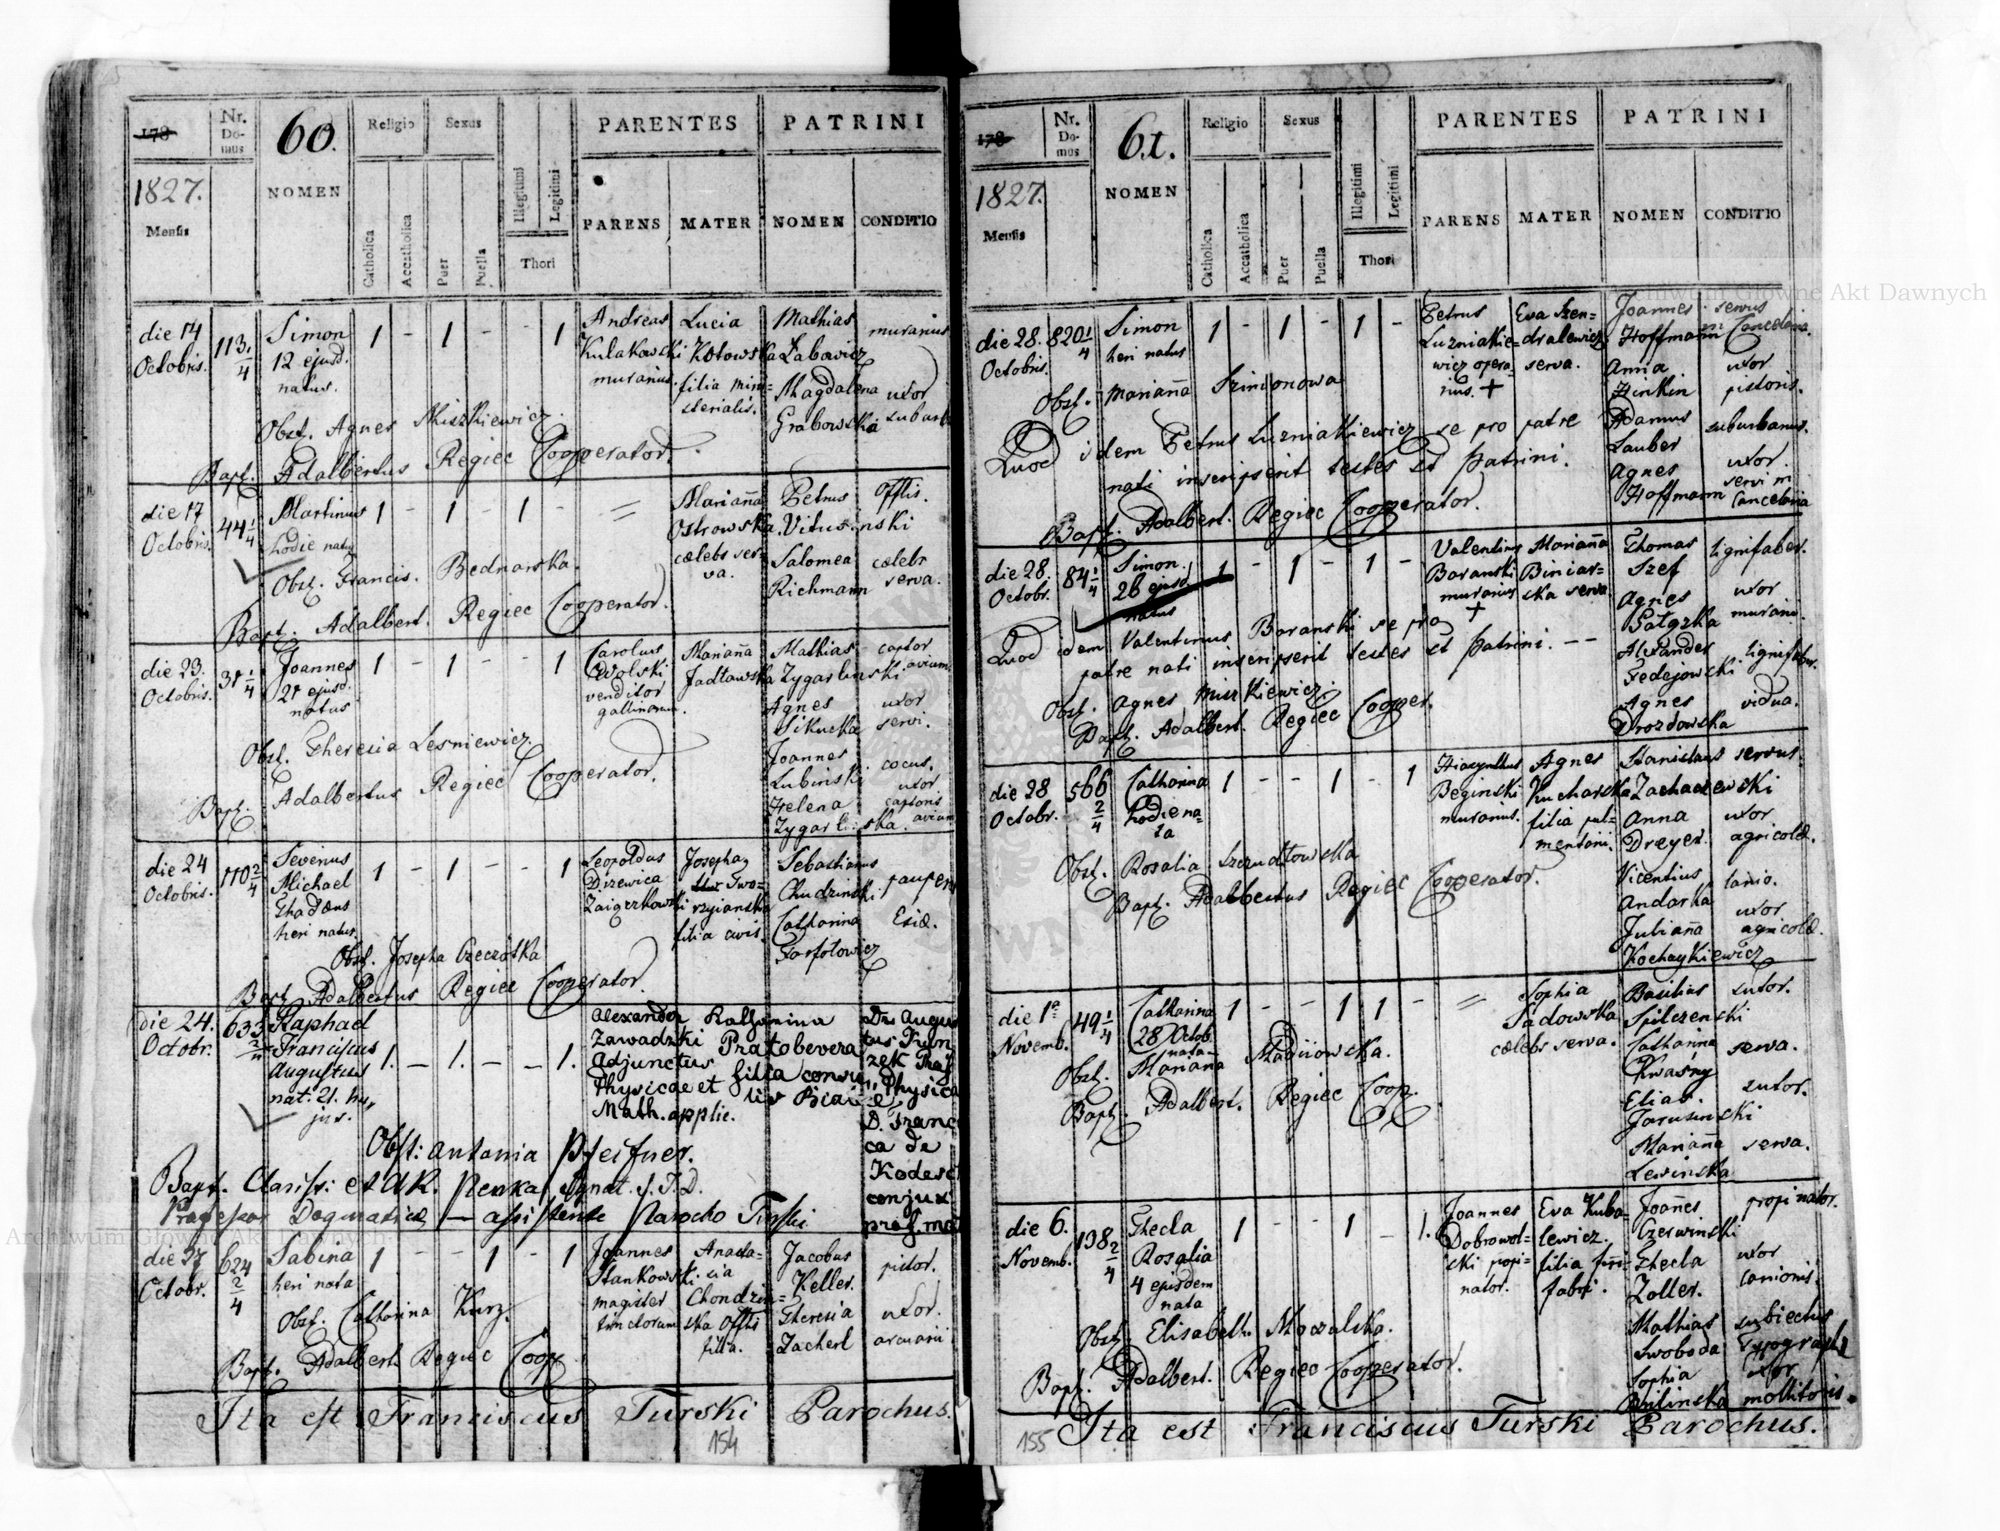 178
Nr. Domus
60.
Religio
Sexus
PARENTES
PATRINI
1827.
Mensis
NOMEN
Catholica
Accatholica
Puer
Puella
Illegitimi
Legitimi
Thori
PARENS
MATER
NOMEN
CONDITIO
die 14 113 1/4 Simon 1 - 1 - - 1 Andreas Lucia Mathias murarius
Octobris. 12 ejusd. Kulakowski Kotowska Labowicz
natus. murarius. filia mini= Magdalena uxor
sterialis. Grabowska suburb
Obst. Agnes Miszkiewicz.
Bapt. Adalbertus Regiec Cooperator.
die 17 44 1/4 Martinus 1 - 1 - 1 - = Marianna Petrus Offlis.
Octobris. hodie natus Ostrowska Vitusinski
cælebs ser= Salomea cælebs
va. Richmann serva.
Obst. Francis. Bednarska.
Bapt. Adalbert. Regiec Cooperator.
die 23. 31 1/4 Joannes 1 - 1 - - 1 Carolus Marianna Mathias captor
Octobris. 21 ejusd. Wolski Jadtowska Zygarlinski avium.
natus venditor Agnes uxor
gallinarum. Sikucka servi.
Obst. Theresia Lesniewicz. Joannes cocus.
Lubinski uxor
Bapt. Adalbertus Regiec Cooperator. Helena captoris
Zygarlinska. avium
die 24 110 2/4 Severinus 1 - 1 - - 1 Leopoldus Josepha Sebastianus pauper
Octobris. Michael Drzewica Two= Chudzinski
Thadæus Zaigerkowski rzyianska Catharina
heri natus. filia civis. Farfotowicz
Obst. Josepha Czeczotka
Bapt. Adalbertus Regiec Cooperator.
die 24. 633 Raphael Alexander Katharina Dr. Augus
Octobr. Franciscus 1. - 1. - - 1. Zawadzki Pratobevera tus Kun
Augustus Adjunctus filia consi- zek Prof
nat. 21. hu, Physicae et Physica
jus. Math. applic. D. Franc
ca de
Obst: Antonia Pfeifner. Kodesc
Bapt. Clariss: et AR. Penka Ignat. S. T. D. conjux
Professor Dogmaticæ — assistente Parocho Turski prof. ma
die 27 624 2/4 Sabina 1 - - 1 - 1 Joannes Anasta= Jacobus pictor.
Octobr. heri nata Stankowski sia Keller.
magister Chondzin= Theresia uxor.
tinctorum ska Offlis Zacherl arcuarii
filia.
Obst. Catharina Kurz.
Bapt. Adalbert Regiec Coop.
Ita est Franciscus Turski Parochus.
154
178
Nr. Domus
61.
Religio
Sexus
PARENTES
PATRINI
1827.
Mensis
NOMEN
Catholica
Accatholica
Puer
Puella
Illegitimi
Legitimi
Thori
PARENS
MATER
NOMEN
CONDITIO
die 28. 820 1/4 Simon 1 - 1 - 1 - Petrus Eva Szen= Joannes servus
Octobris heri natus Luzniakie= dralewicz Hoffmann in Cancelaria.
wicz opera= serva. Anna uxor
rius. + Hinkin pistoris.
Obst. Marianna Szimonowa
Quod idem Petrus Luzniakiewicz se pro patre Adamus suburbanus.
nati inscripserit testes st Patrini. Lauber
Agnes uxor
Hoffmann servi in Cancelaria
Bapt. Adalbert. Regiec Cooperator.
die 28. 84 1/4 Simon. 1 - 1 - 1 - Valentinus Marianna Thomas lignifaber.
Octobr. 26 ejusd Baranski Biniar= Szef
natus murarius ska serva Agnes uxor
+ Gałązka murarii.
Quod idem Valentinus Baranski se pro
patre nati inscripserit testes st Patrini. — — Alexander lignifaber.
Fedejowski
Obst. Agnes Miszkiewicz. Agnes vidua.
Bapt. Adalbert. Regiec Cooper. Drozdowska
die 28 566 2/4 Catharina 1 - - 1 - 1 Hiacynthus Agnes Stanislaus servus.
Octobr. hodie na= Beginski Kucharska Zachaczewski
ta murarius. filia pul= Anna uxor
mentarii. Dreyer. agricolæ.
Obst. Rosalia Szczudtowska Vicentius lanio.
Bapt. Adalbertus Regiec Cooperator. Andarka uxor
Julianna agricolæ.
Kochaykiewicz
die 1ª 49 1/4 Catharina 1 - - 1 1 - = Sophia Basilius sutor.
Novemb. 28 Octob. Sadowska Spilczenski
nata cælebs serva. Catharina serva.
Obst. Marianna Madeiowska. Kwasny
Bapt. Adalbert. Regiec Coop. Eliab. sutor.
Jarusinski
Marianna serva.
Lewinska
die 6. 138 2/4 Thecla 1 - - 1 - 1. Joannes Eva Kuba= Joannes propinator.
Novemb. Rosalia Dobrowol= lewicz. Czerwinski
4 ejusdem ski popi= filia Thecla uxor
nata nator. fabri. Zoller. lanionis.
Obst. Elisabeth. Moczalska. Mathias subiectus
Swoboda Typograph
Bapt. Adalbert. Regiec Cooperator. Sophia uxor
Bilinska mollitoris
155 Ita est Franciscus Turski Parochus.
Archiwum Główne Akt Dawnych
Archiwum Główne Akt Dawnych